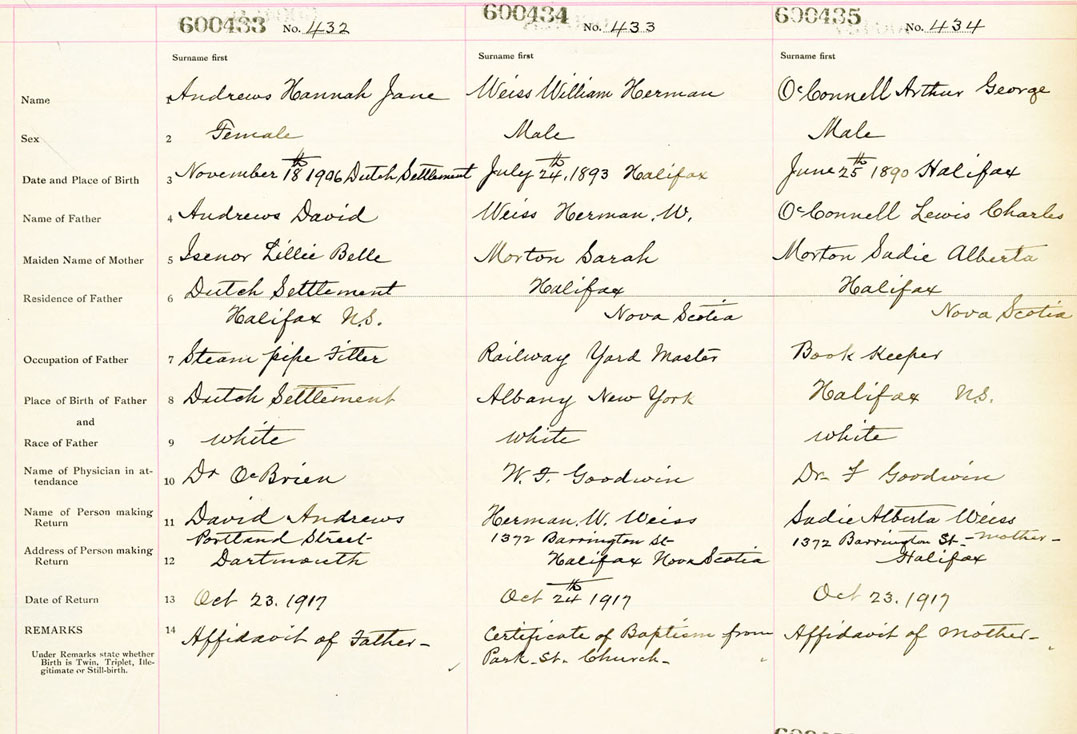 600433 No. 432 600434 No. 433 600435 No. 434
Surname first Surname first Surname first
Name 1 Andrews Hannah Jane Weiss William Herman OcConnell Arthur George
Sex 2 Female Male Male
Date and Place of Birth 3 November 18th 1906 Dutch Settlement July 24th, 1893 Halifax June 25th 1890 Halifax
Name of Father 4 Andrews David Weiss Herman. W. OcConnell Lewis Charles
Maiden Name of Mother 5 Isenor Lillie Belle Morton Sarah Morton Sadie Alberta
Residence of Father 6 Dutch Settlement Halifax Halifax
Halifax N.S. Nova Scotia Nova Scotia
Occupation of Father 7 Steam pipe Fitter Railway Yard Master Book Keeper
Place of Birth of Father 8 Dutch Settlement Albany New York Halifax N.S.
and
Race of Father 9 white white white
Name of Physician in at-
tendance 10 Dr OcBrien W. F. Goodwin Dr- F Goodwin
Name of Person making
Return 11 David Andrews Herman. W. Weiss Sadie Alberta Weiss
Portland Street- 1372 Barrington St- 1372 Barrington St. - Mother -
Address of Person making
Return 12 Dartmouth Halifax Nova Scotia Halifax
Date of Return 13 Oct 23. 1917 Oct 24th 1917 Oct 23. 1917
REMARKS 14 Affidavit of Father - Certificate of Baptism from Affidavit of Mother -
Park. St. Church -
Under Remarks state whether
Birth is Twin, Triplet, Ille-
gitimate or Still-birth.